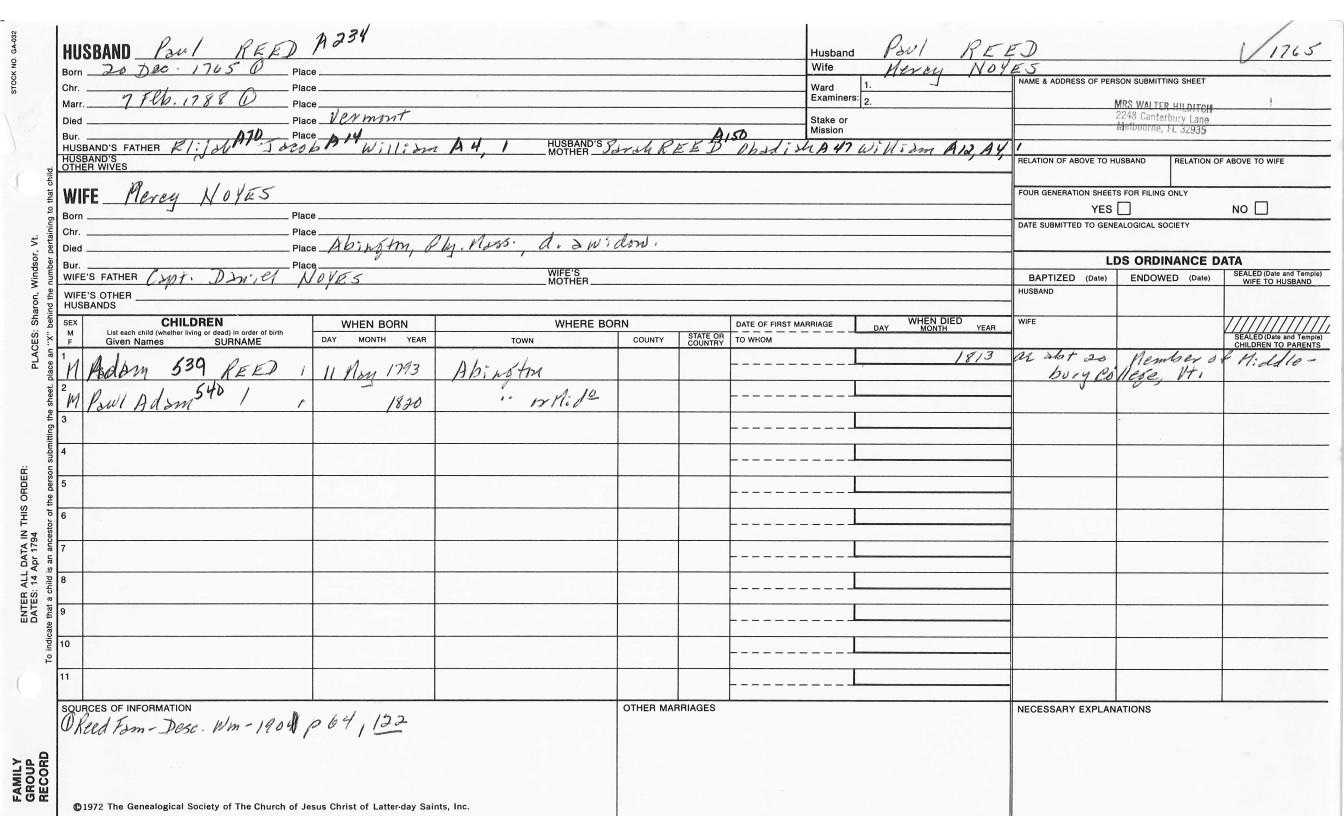 STOCK NO. GA-032
HUSBAND Paul REED A234
Born 20 Dec. 1765 ① Place
Chr. Place
Marr. 7 Feb. 1788 ① Place
Died Place Vermont
Bur. Place
HUSBAND'S FATHER Elijah A70 Jacob A14 William A4, 1 HUSBAND'S MOTHER Sarah REED A150 Obadiah A47 William A12, A4, 1
HUSBAND'S OTHER WIVES
Husband Paul REED ✓ 1765
Wife Mercy NOYES
Ward Examiners: 1.
2.
Stake or Mission
NAME & ADDRESS OF PERSON SUBMITTING SHEET
MRS WALTER HILDITCH
2248 Canterbury Lane
Melbourne, FL 32935
RELATION OF ABOVE TO HUSBAND RELATION OF ABOVE TO WIFE
FOUR GENERATION SHEETS FOR FILING ONLY
YES NO
DATE SUBMITTED TO GENEALOGICAL SOCIETY
WIFE Mercy NOYES
Born Place
Chr. Place
Died Place Abington, Ply. Mass., d. a widow.
Bur. Place
WIFE'S FATHER Capt. Daniel NOYES WIFE'S MOTHER
WIFE'S OTHER HUSBANDS
LDS ORDINANCE DATA
BAPTIZED (Date) ENDOWED (Date) SEALED (Date and Temple) WIFE TO HUSBAND
HUSBAND
WIFE
SEALED (Date and Temple) CHILDREN TO PARENTS
SEX M F CHILDREN List each child (whether living or dead) in order of birth Given Names SURNAME WHEN BORN DAY MONTH YEAR WHERE BORN TOWN COUNTY STATE OR COUNTRY DATE OF FIRST MARRIAGE TO WHOM WHEN DIED DAY MONTH YEAR
1 M Adam 539 REED 11 May 1793 Abington 1813 abt 20 Member of Middle-
bury College, Vt.
2 M Paul Adam 540 1820 " or Mid
3
4
5
6
7
8
9
10
11
SOURCES OF INFORMATION
① Reed Fam- Desc. Wm-1901 p 64, 122
OTHER MARRIAGES
NECESSARY EXPLANATIONS
©1972 The Genealogical Society of The Church of Jesus Christ of Latter-day Saints, Inc.
FAMILY GROUP RECORD
ENTER ALL DATA IN THIS ORDER:
DATES: 14 Apr 1794 PLACES: Sharon, Windsor, Vt.
To indicate that a child is an ancestor of the person submitting the sheet, place an "X" behind the number pertaining to that child.